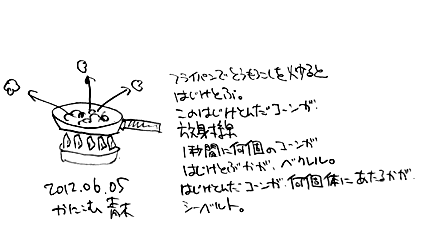 フライパンでとうもろこしを炒ると
はじけとぶ。
このはじけとんだコーンが
放射線
1秒間に何個のコーンが
はじけとぶかが、ベクレル。
はじけとんだコーンが何個体にあたるかが
シーベルト。
2012.06.05
かにこむ 青木